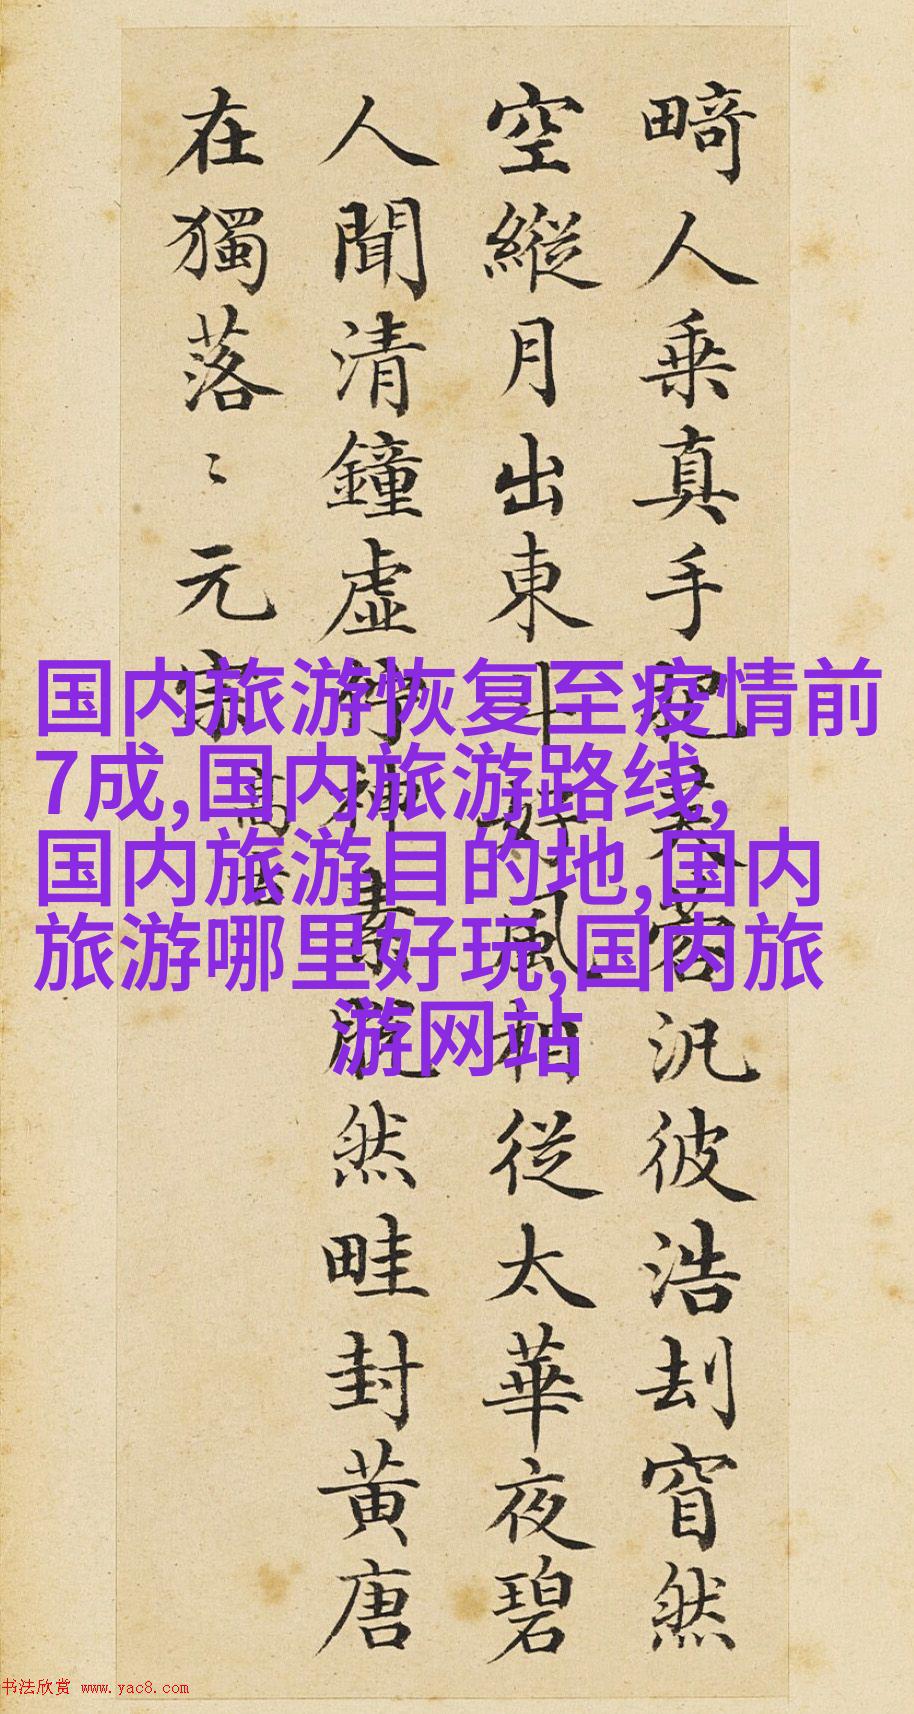 畸人乗真手把芙蓉汎彼浩刦窅然
空縱月出東斗好風相從太華夜碧
人聞清鐘虛佇神素脫然畦封黃唐
在獨落〻元宗
高古
国内旅游恢复至疫情前
7成,国内旅游路线,
国内旅游目的地,国内
旅游哪里好玩,国内旅
游网站
书法欣赏 www.yac8.com